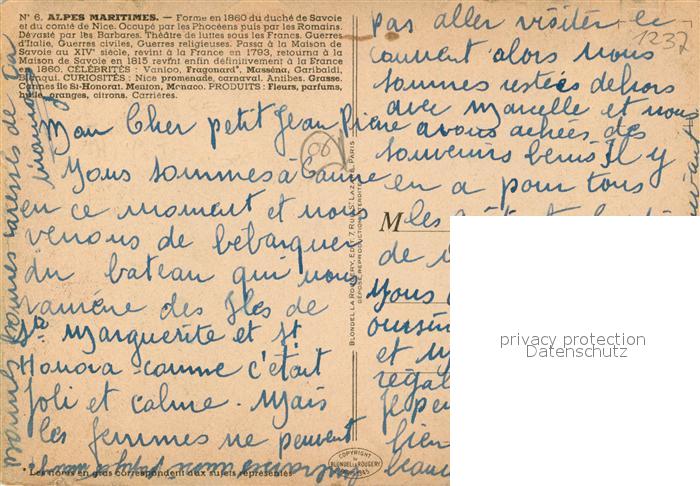 N° 6. ALPES MARITIMES. – Forme en 1860 du duché de Savoie
et du comté de Nice. Occupé par les Phocéens puis par les Romains.
Dévasté par les Barbares. Théâtre de luttes sous les Francs. Guerres
d'Italie, Guerres civiles, Guerres religieuses. Passa à la Maison de
Savoie au XIVᵉ siècle, revint à la France en 1793, retourna à la
Maison de Savoie en 1815 revint enfin définitivement à la France
en 1860. CÉLÉBRITÉS : Vanloo, Fragonard*, Masséna, Garibaldi,
Blanqui. CURIOSITÉS : Nice promenade, carnaval. Antibes. Grasse.
Cannes Ile St-Honorat. Menton, Monaco. PRODUITS : Fleurs, parfums,
huile, oranges, citrons. Carrières.
Mon Cher petit Jean Pierre
Nous sommes à Canne
en ce moment et nous
venons de debarquer
du bateau qui nous
ramène des Iles de
Ste Marguerite et St
Honora. comme c'était
joli et calme. Mais
les femmes ne peuvent
* Les noms en gras correspondent aux sujets représentés
bonnes caresses de ta
maman
BLONDEL LA ROUGERY, EDIT. 7, RUE ST-LAZARE, PARIS
DÉPOSÉ, REPRODUCTION INTERDITE
COPYRIGHT
BY
BLONDEL LA ROUGERY
1945
1237
pas aller visiter le
couvent alors nous
sommes restées dehors
avec Marcelle et nous
avons achées des
souvenirs benis il y
en a pour tous
M
les
de
Nous
et
bien
privacy protection
Datenschutz